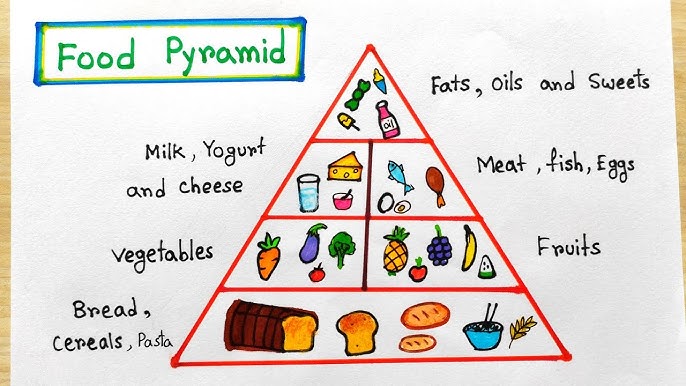 Food Pyramid
Fats, Oils and Sweets
Oil
Milk, Yogurt
and cheese
Meat, fish, Eggs
Vegetables
Fruits
Bread,
Cereals, Pasta